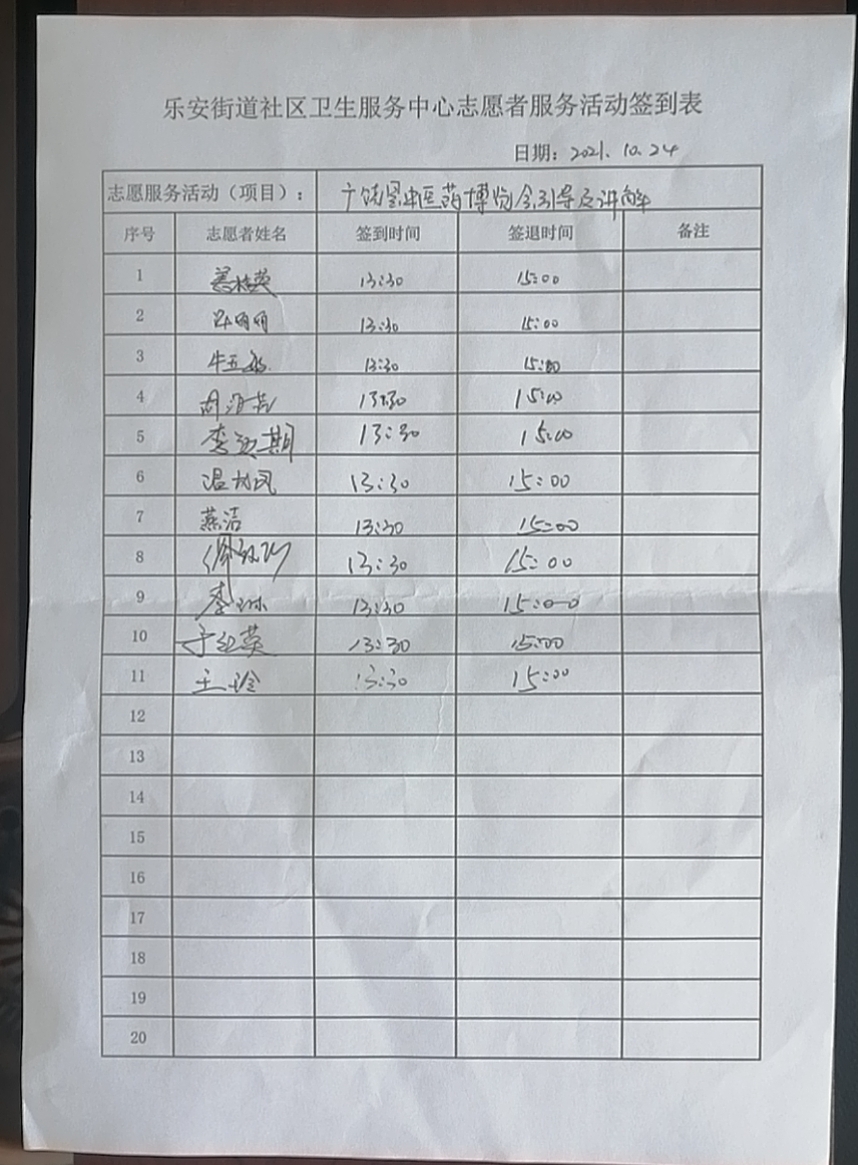 乐安街道社区卫生服务中心志愿者服务活动签到表
日期：2021.10.24
志愿服务活动（项目）： 广饶县中医药博览会引导及讲解
序号 志愿者姓名 签到时间 签退时间 备注
1 13:30 15:00
2 13:30 15:00
3 13:30 15:00
4 13:30 15:00
5 13:30 15:00
6 13:30 15:00
7 燕洁 13:30 15:00
8 13:30 15:00
9 李琳 13:30 15:00
10 于红英 13:30 15:00
11 王玲 13:30 15:00
12
13
14
15
16
17
18
19
20